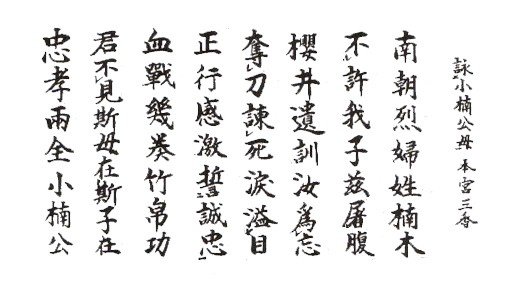 詠小楠公母 本宮三香
南朝烈婦姓楠木
不許我子茲屠腹
櫻井遺訓汝爲忘
奪刀諫死淚溢目
正行感激誓誠忠
血戰幾奏竹帛功
君不見斯母在斯子在
忠孝兩全小楠公